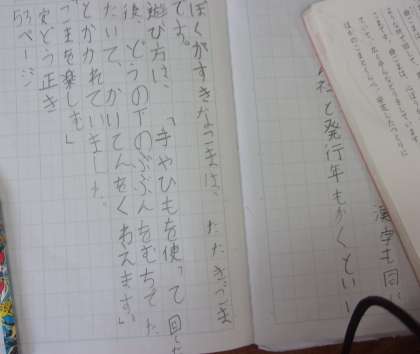 漢字も同
社と発行年もかくとい
ぼくがすきなこまは、たたきごま
です。
遊び方は、「手やひもを使って回した
後、どうの下のぶぶんをむちでた
たいて、かいてんをくわえます。」
とかかれていました。
こまを楽しむ」
安どう正き
53ページ